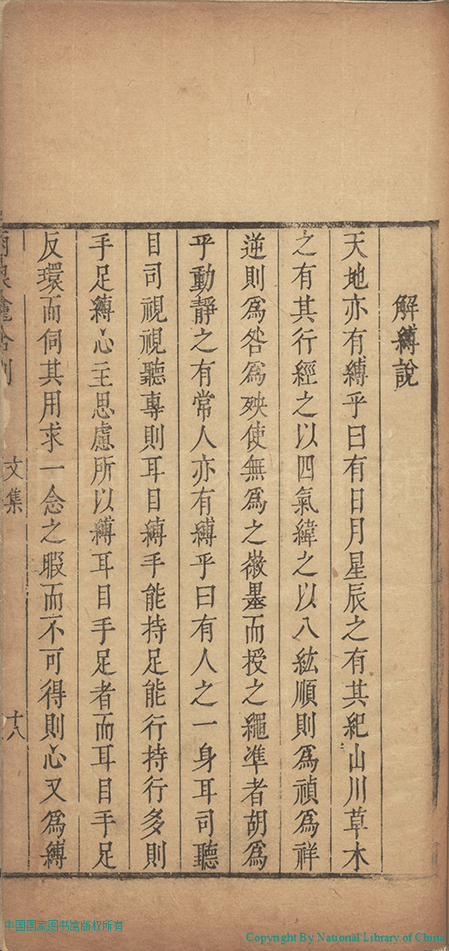 解縛說
天地亦有縛乎曰有日月星辰之有其紀山川草木
之有其行經之以四氣緯之以八紘順則爲禎爲祥
逆則爲咎爲殃使無爲之徽墨而授之繩準者胡爲
乎動靜之有常人亦有縛乎曰有人之一身耳司聽
目司視視聽專則耳目縛手能持足能行持行多則
手足縛心主思慮所以縛耳目手足者而耳目手足
反環而伺其用求一念之暇而不可得則心又爲縛
文集
十八
中国国家图书馆版权所有
Copyright By National Library of China